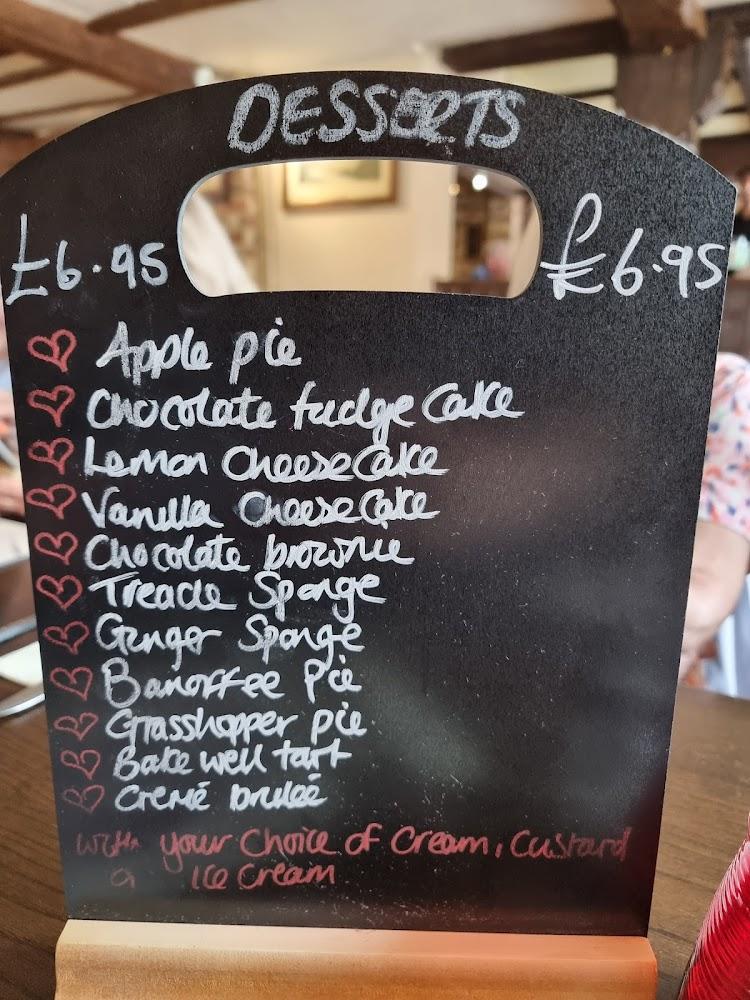 DESSERTS
£6.95 £6.95
Apple pie
Chocolate fudge Cake
Lemon CheeseCake
Vanilla CheeseCake
Chocolate brownie
Treacle Sponge
Ginger Sponge
Banoffee Pie
Grasshopper pie
Bake well tart
Cremé brulée
with your Choice of Cream, Custard
a Ice Cream